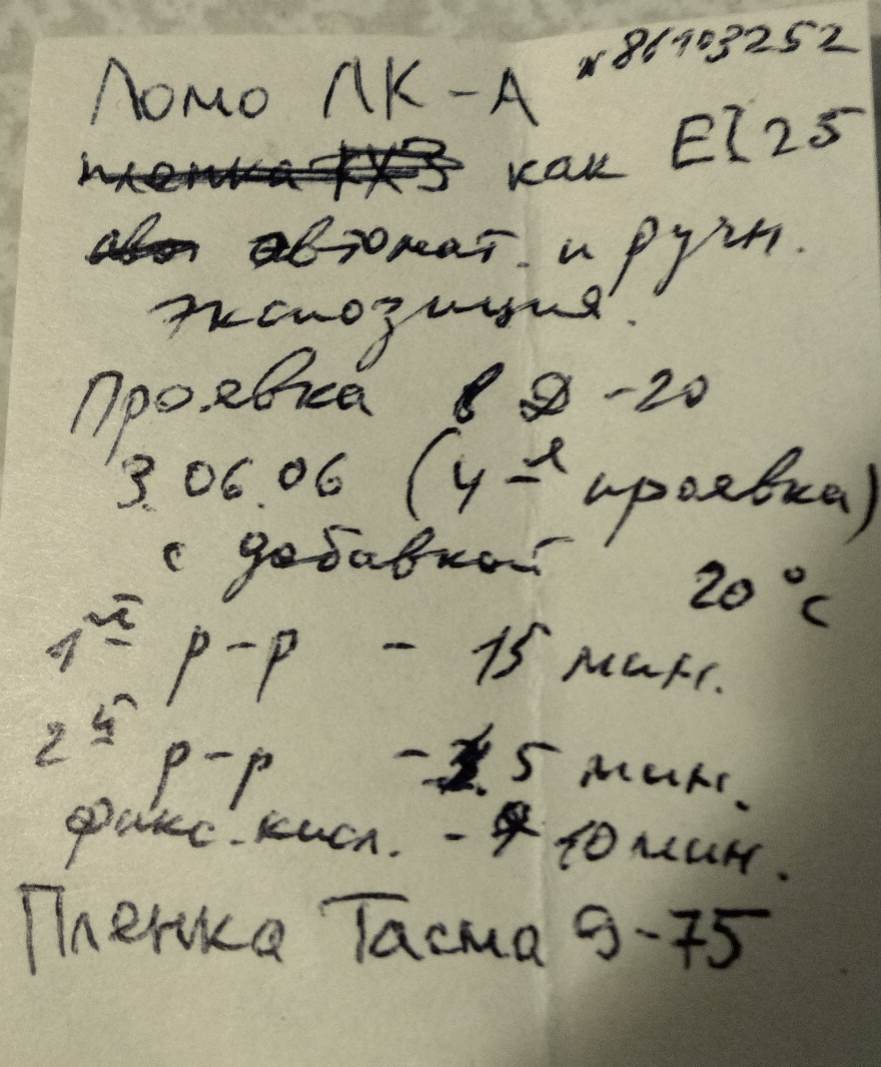 Ломо ЛК-А № 86103252
как EI 25
автомат. и ручн.
экспозиция.
Проявка в Д-20
3.06.06 (4-я проявка)
с добавкой 20°С
1-й р-р - 15 мин.
2-й р-р - 5 мин.
фикс. кисл. - 10 мин.
Пленка Тасма Э-75